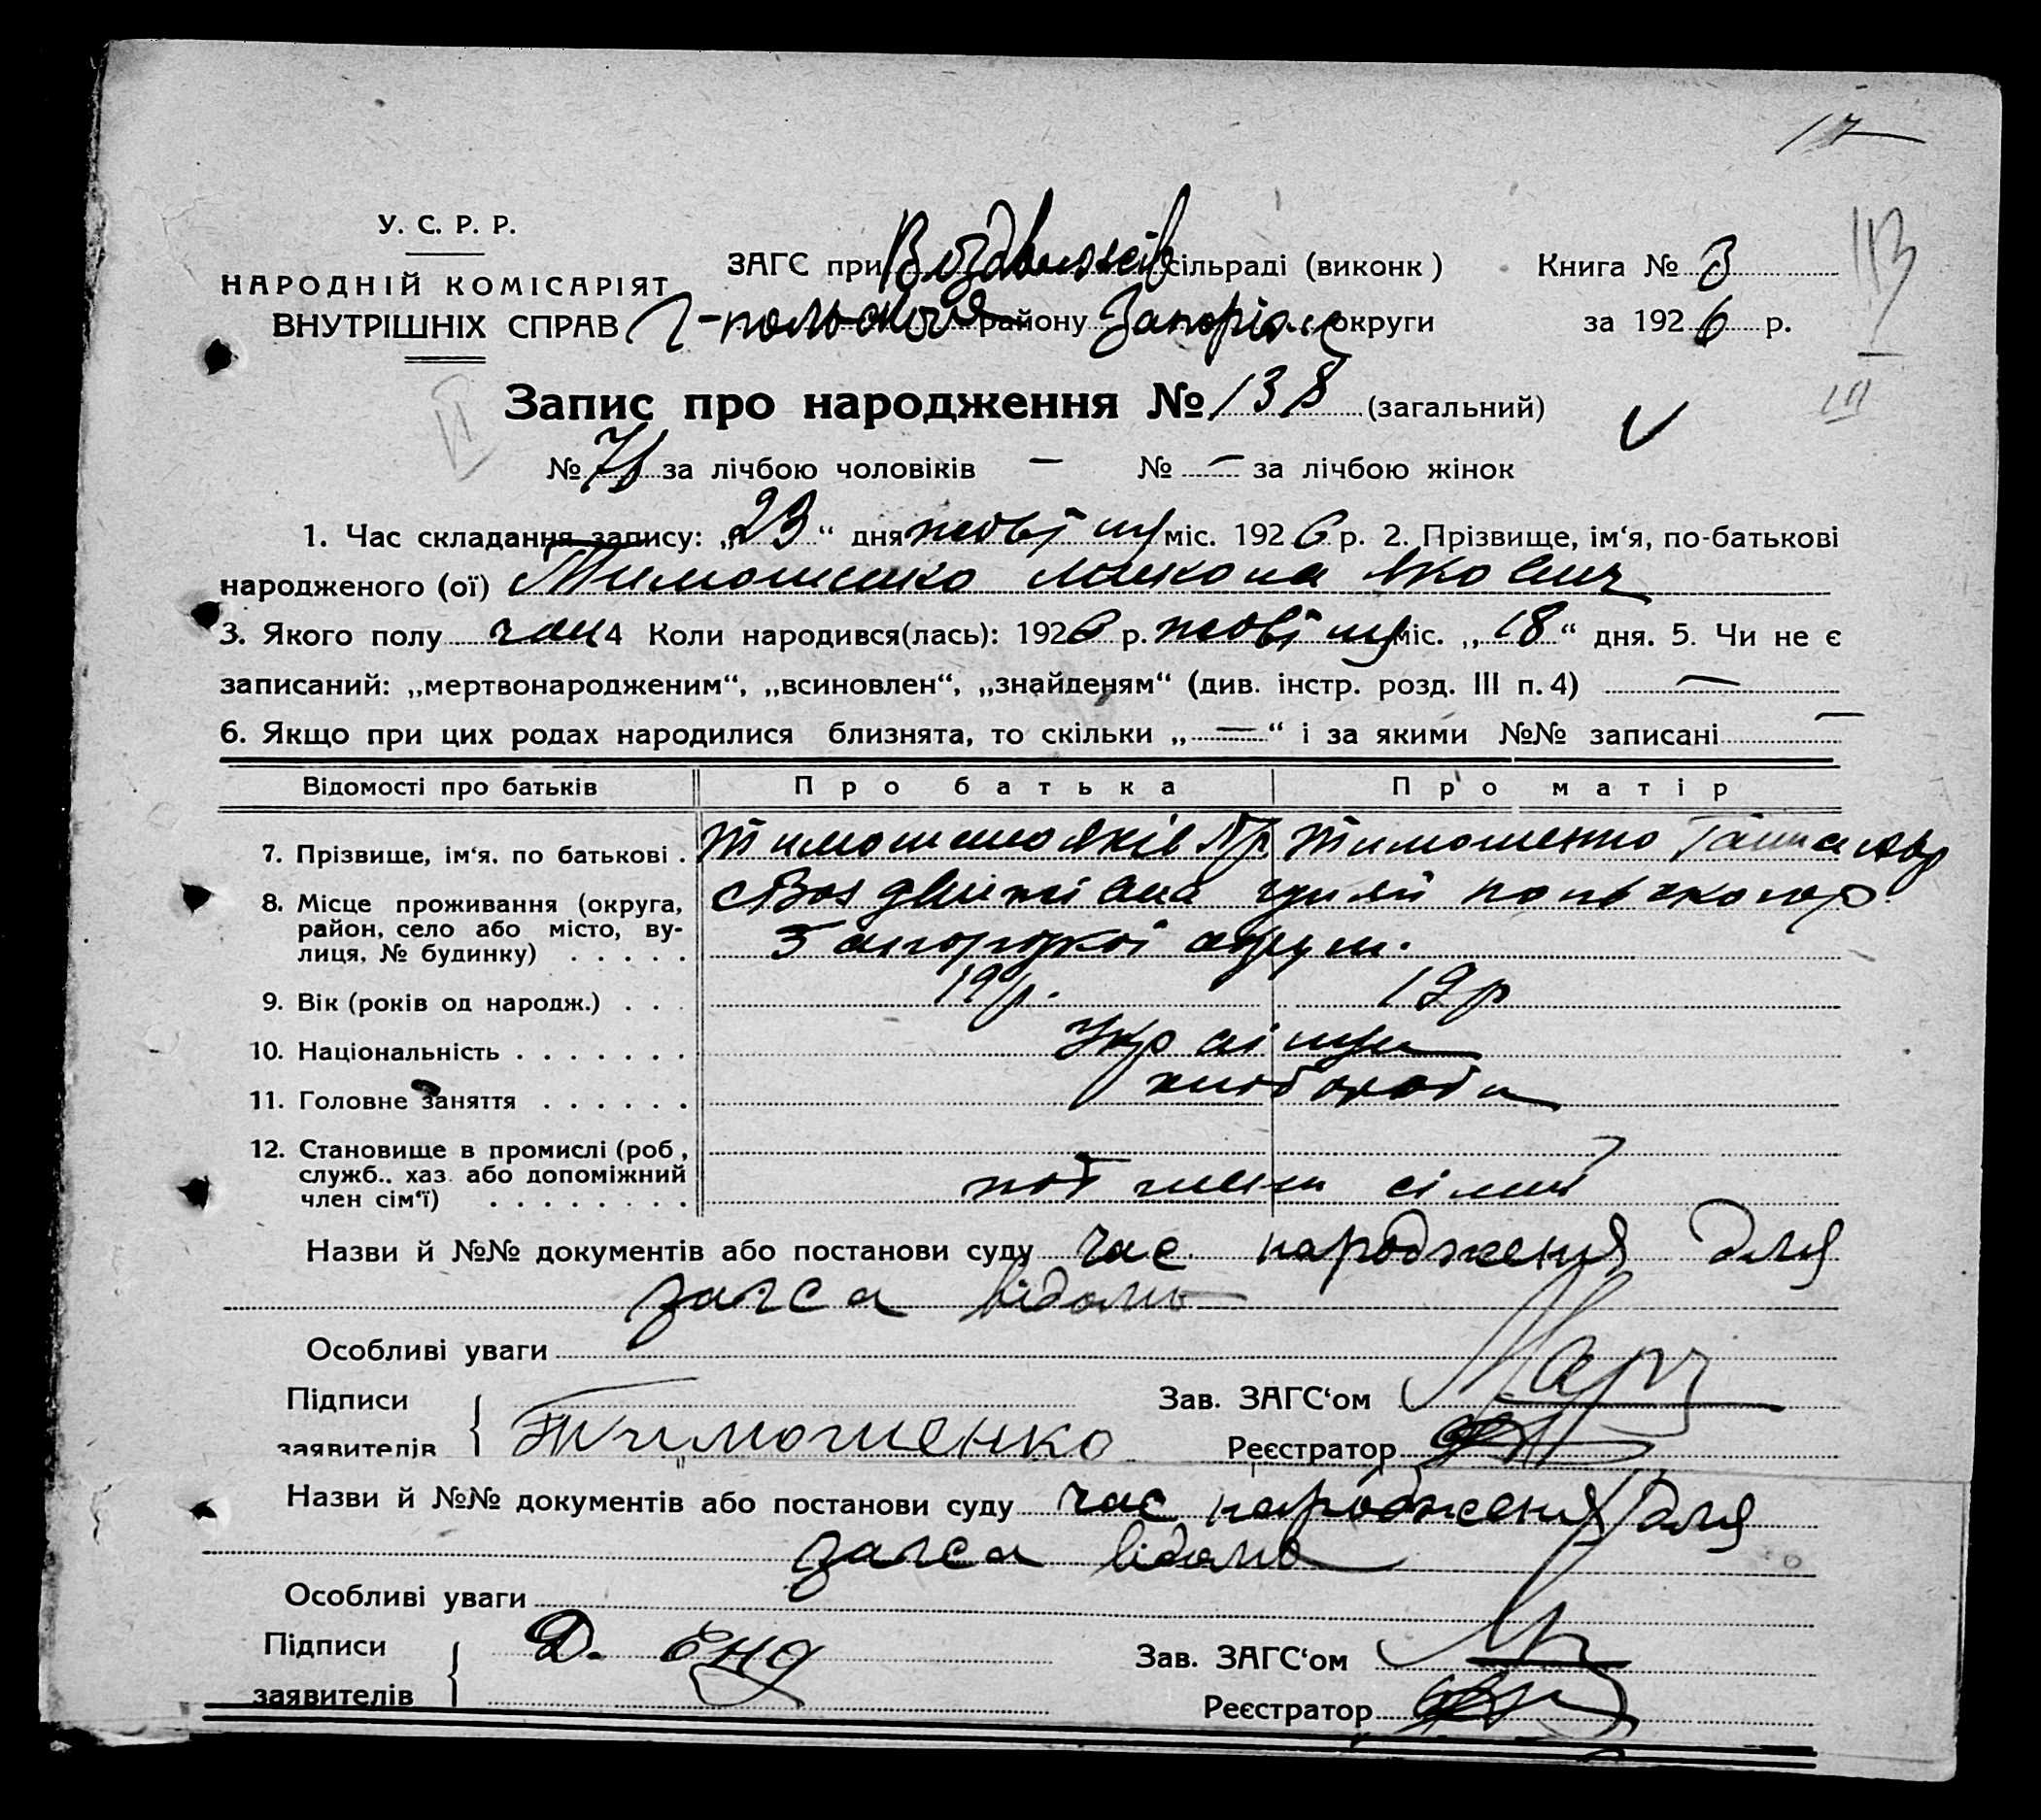 17
У. С. Р. Р.
НАРОДНІЙ КОМІСАРІЯТ
ВНУТРІШНІХ СПРАВ
ЗАГС при Воздвижів сільраді (виконк)
Книга № 3
Г-польськ району Запоріж округи
за 1926 р.
III
Запис про народження № 138 (загальний)
№ 71 за лічбою чоловіків — № — за лічбою жінок
1. Час складання запису: „23“ дня жовтня міс. 1926 р. 2. Прізвище, ім‘я, по-батькові
народженого (ої) Тимошенко Микола Якович
3. Якого полу чол 4 Коли народився(лась): 1926 р. жовтня міс. „18“ дня. 5. Чи не є
записаний: „мертвонародженим“, „всиновлен“, „знайденям“ (див. інстр. розд. III п. 4) —
6. Якщо при цих родах народилися близнята, то скільки „—“ і за якими №№ записані —
Відомості про батьків Про батька Про матір
7. Прізвище, ім‘я, по батькові . Тимошенко Яків Тимошенко Ганна
8. Місце проживання (округа,
район, село або місто, ву-
лиця, № будинку) . . . . .
9. Вік (років од народж.) . . . 19 р. 19 р
10. Національність . . . . . . .
11. Головне заняття . . . . . . хлібороби
12. Становище в промислі (роб,
служб.. хаз. або допоміжний
член сім‘ї) . . . . . . . .
Назви й №№ документів або постанови суду час народження для
загса відомо
Особливі уваги
Підписи
заявителів
Тимошенко
Зав. ЗАГС‘ом
Реєстратор
Назви й №№ документів або постанови суду час народження для
загса відомо
Особливі уваги
Підписи
заявителів
Д.
Зав. ЗАГС‘ом
Реєстратор